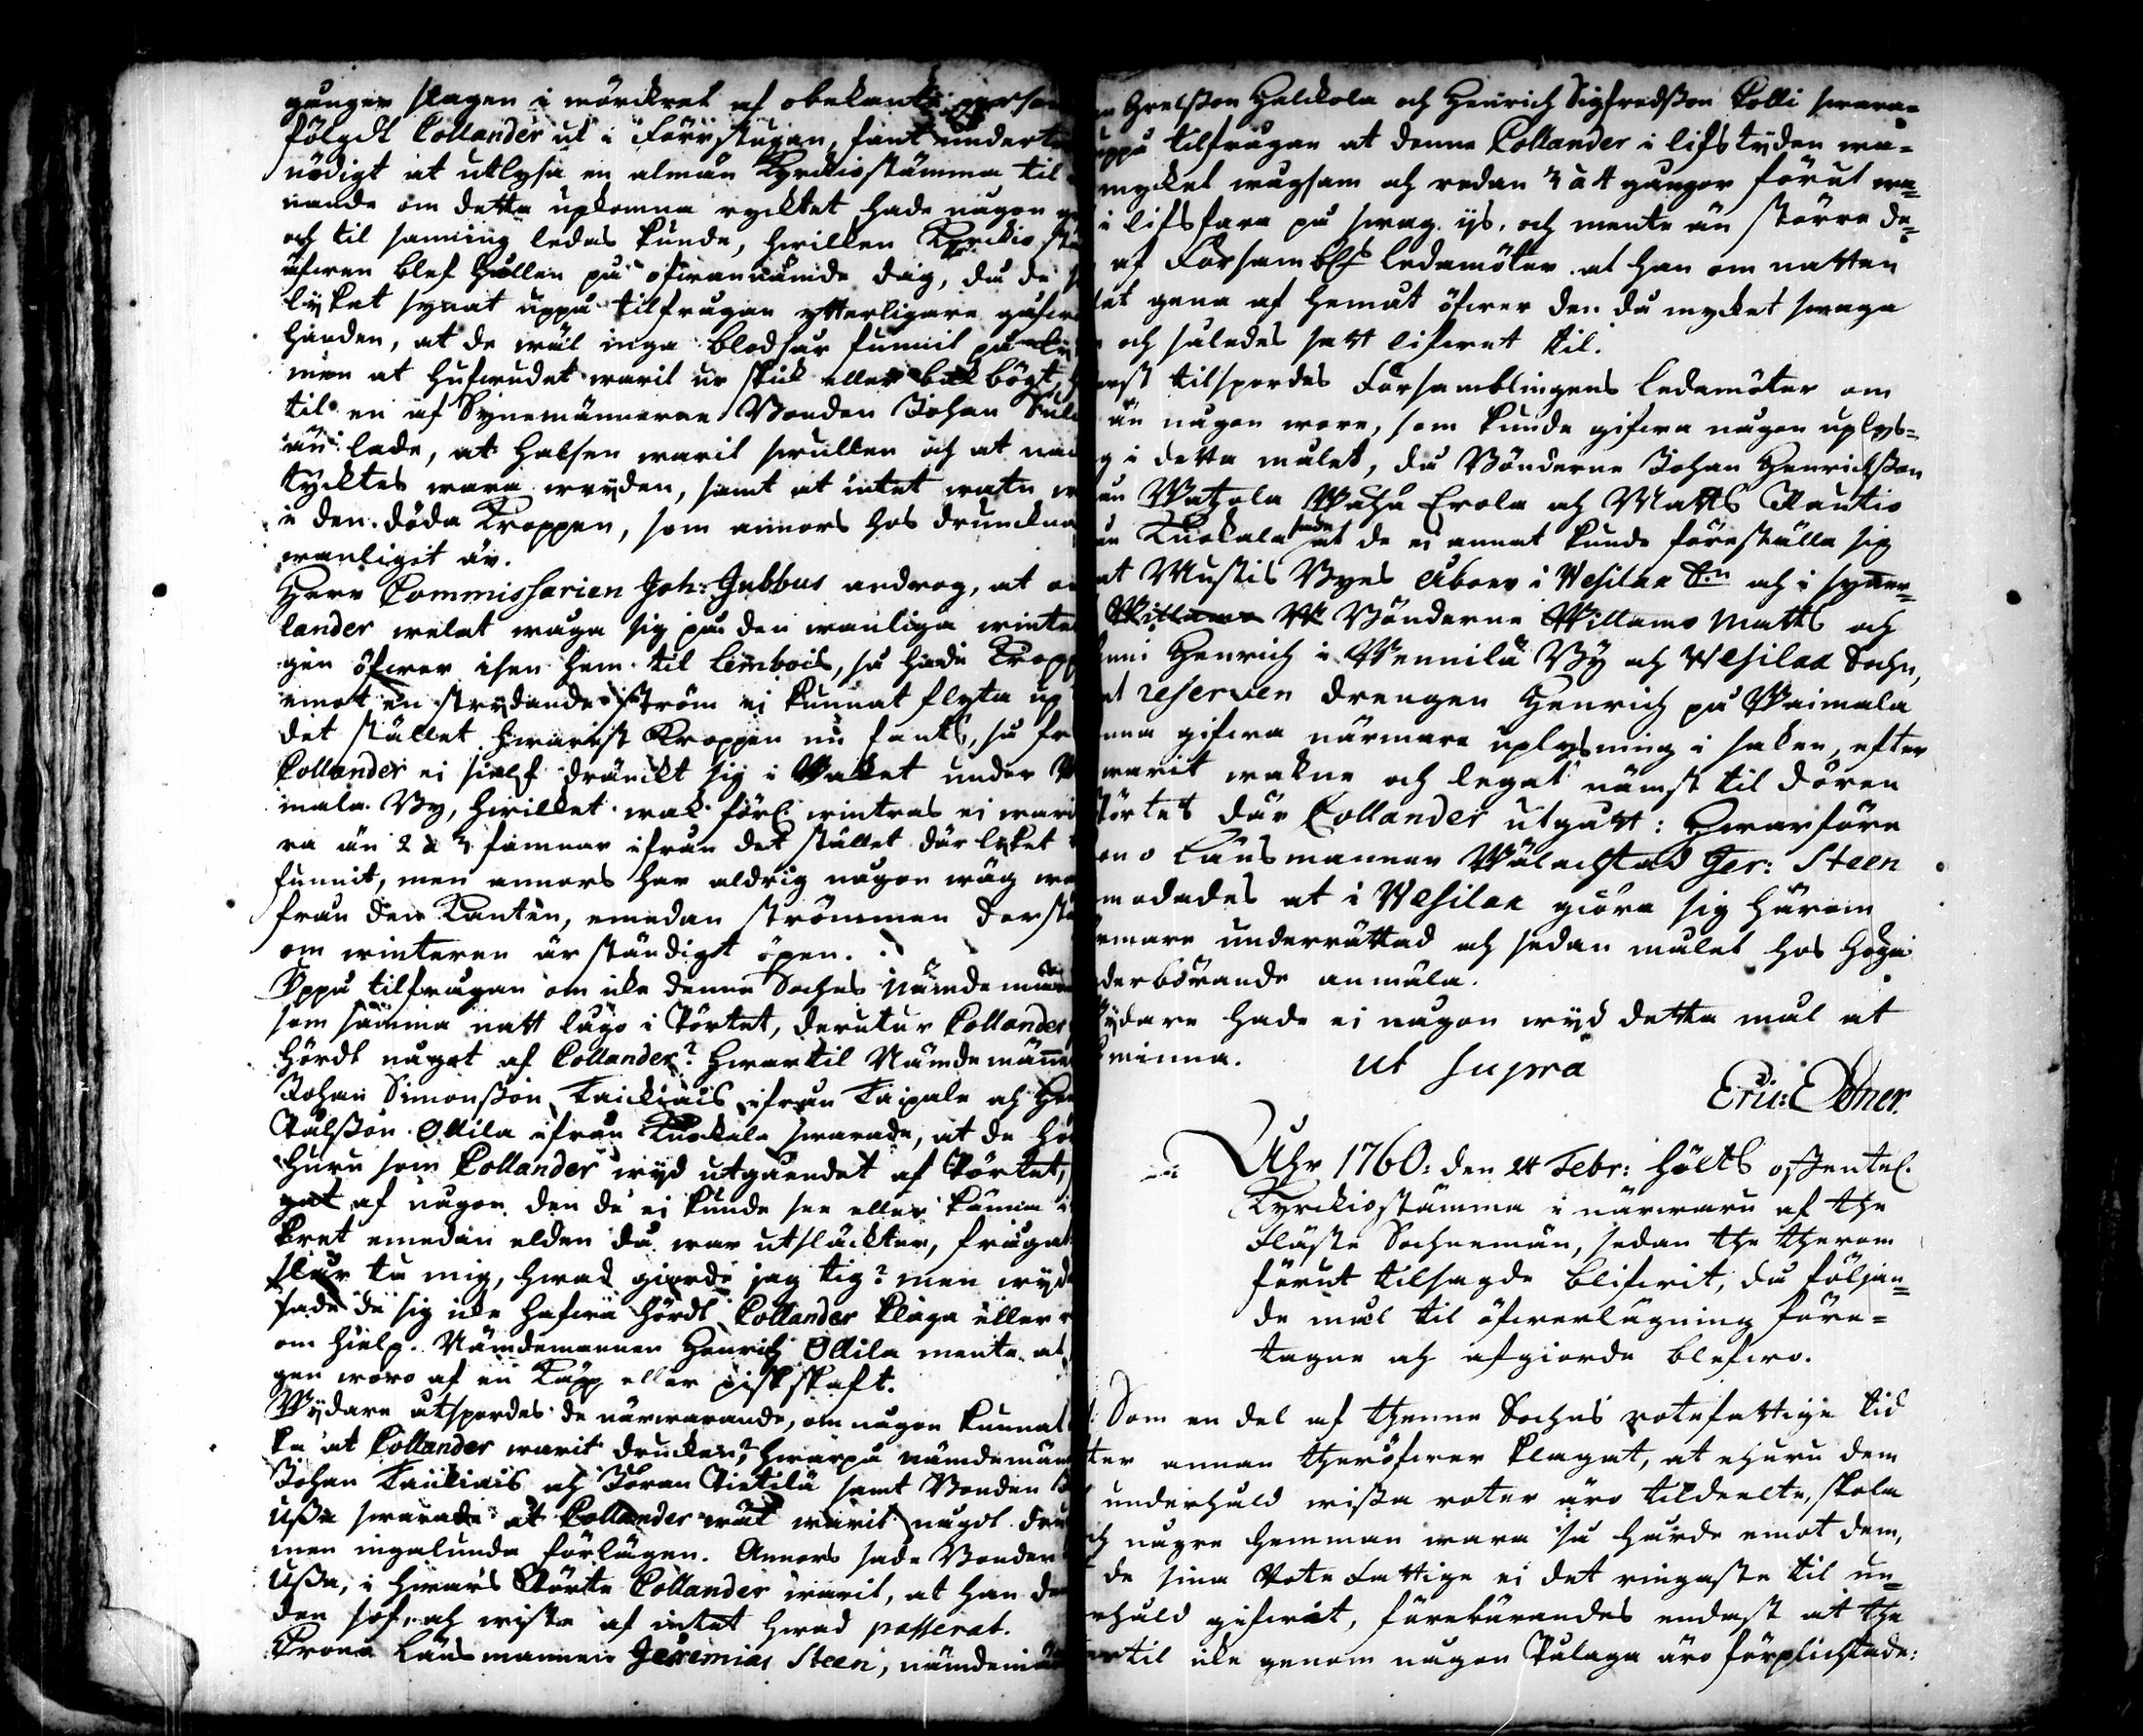 gånger slagen i mörckret af obekante person
följdt Collander ut i Förrstugan, fant underte
nödigt at utlysa en almän Kyrckiostämma til
nande om detta upkomna rycktet hade någon
och til sanning ledas kunde, hwilken Kyrckio stä
äfwen blef hållen på ofwannämde dag, då de
lyket synat uppå tilfrågan ytterligare gåfwo
handen, at de wäl inga blodsår funnit på ly
men at hufwudet warit ur skick eller bak bögt,
til en af Synemännerne Bonden Johan
än lade, at halsen warit swullen och at na
tycktes wara wryden, samt at intet watn
i den döda Kroppen, som annors hos druncknade
wanligit är.
Herr Commissarien Joh: Gubbus androg, at om
lander welat wåga sig på den wanliga winter
gen öfwer isen hem til Lembois, så hade Kropp
emot en strydande ström ej kunnat flyta up
det stället hwarest Kroppen nu fants, så fr
Collander ej sielf dränckt sig i Waket under
mala By, hwilket wak förl. wintras ej warit
ra än 2 à 3 famnar ifrån det stället där lyket
funnit, men annors har aldrig någon wäg wa
från den Kanten, emedan strömmen derstä
om winteren är ständigt öpen.
Uppå tilfrågan om icke denne Sochns Nämdemän
som samma natt lågo i Pörtet, derutur Collander
hördt något af Collander? Hwartil Nämdemännen
Johan Simonsson Kaickiais ifrån Taipale och Hen
Pålsson Ollila ifrån Kuokala swarade, at de hö
huru som Collander wyd utgåendet af Pörtet,
gat af någon den de ej kunde see eller känna i
kret emedan elden då war utsläckter, frågat
slår tu mig, hwad giorde jag tig? men wyd
sade de sig icke hafwa hördt Collander klaga eller
om hielp. Nämdemannen Henrich Ollila mente at
gen woro af en Käpp eller piskskaft.
Wydare utspordes de närwarande, om någon kunnat
ka at Collander warit drucken? hwarpå nämdemän
Johan Kaickiais och Jöran Pietilä samt Bonden
Ussa swarade at Collander wäl warit något dru
men ingalunda förlägen. Annors sade Bonden
Ussa, i hwars Pörte Collander warit, at han d
den sof, och wiste af intet hwad passerat.
Krono Länsmannen Jeremias Steen, nämdemän
Grelsson Halckola och Henrich Sigfredsson Kolli swara=
uppå tilfrågan at denne Collander i lifstyden wa=
mycket wågsam och redan 3 à 4 gångor förut wa=
i lifsfara på swag ys, och mente än större de=
af Församblgs ledamöter at han om natten
lat gena af hemåt öfwer den då mycket swaga
och således satt lifwet til.
erst tilspordes Församblingens Ledamöter om
än någon wore, som kunde gifwa någon uplys=
g i detta målet, då Bönderne Johan Henricksson
Watzola Waha Erola och Matts Pautio
Kuokala sade at de ej annat kunde föreställa sig
at Mustis Byes Åboer i Wesilax Sn och i synner=
Bönderne Willamo Matts och
Henrich i Mennilä By och Wesilax Sochn,
at reserven drengen Henrich på Waimala
nna gifwa närmare uplysning i saken, efter
warit wakne och legat nämst til dören
Pörtet där Collander utgått: Hwarföre
ono Länsmannen Wälachtad Jer: Steen
modades at i Wesilax giöra sig härom
mare underrättad och sedan målet hos höga
derbörande anmäla.
Wydare hade ej någon wyd detta mål at
minna. ut supra
Eric: Ebner.
Åhr 1760: den 24 Febr: hölts offentel.
Kyrckiostämma i närwaro af the
Fläste Sochnemän, sedan the therom
förut tilsagde blifwit, då följan=
de mål til öfwerlägning före=
tagne och afgiorde blefwo.
Som en del af thenne Sochns rotefattige tid
ter annan theröfwer klagat, at ehuru dem
underhåld wissa roter äro tildeelte, skola
ch någre hemman wara så hårde emot dem,
de sina Rote Fattige ej det ringaste til un=
rhåld gifwit, förebärandes endast at the
ertil icke genom någon Pålaga äro förplichtade: